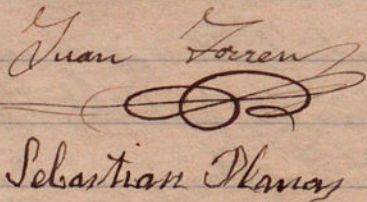 Juan Torrens
Sebastian Planas